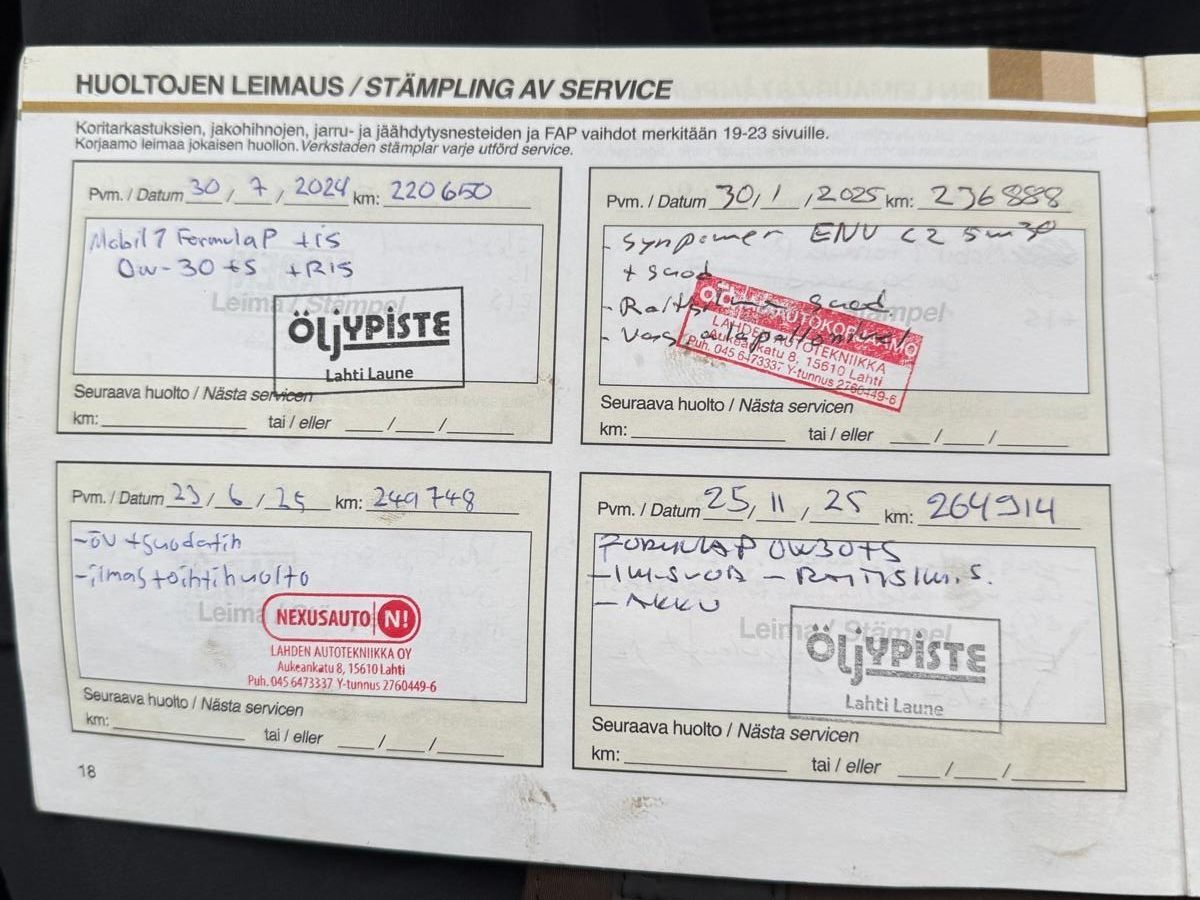 HUOLTOJEN LEIMAUS / STÄMPLING AV SERVICE
Koritarkastuksien, jakohihnojen, jarru- ja jäähdytysnesteiden ja FAP vaihdot merkitään 19-23 sivuille.
Korjaamo leimaa jokaisen huollon. Verkstaden stämplar varje utförd service.
Pvm. / Datum 30 / 7 / 2024 km: 220650
Mobil 1 Formula P +is
0w-30 +s +RIS
Leima / Stämpel
ÖljYPISTE
Lahti Laune
Seuraava huolto / Nästa servicen
km: tai / eller / /
Pvm. / Datum 30 / 1 / 2025 km: 236888
- Synpower ENV C2 5w30
+ suod
- suod
- Vas. alapallonivel
AUTOKORJAAMO
LAHDEN AUTOTEKNIIKKA
Aukeankatu 8, 15610 Lahti
Puh. 045 6473337 Y-tunnus 2760449-6
Seuraava huolto / Nästa servicen
km: tai / eller / /
Pvm. / Datum 23 / 6 / 25 km: 249748
- öv + suodatin
- ilmastointihuolto
Leima / Stämpel
NEXUSAUTO N!
LAHDEN AUTOTEKNIIKKA OY
Aukeankatu 8, 15610 Lahti
Puh. 045 6473337 Y-tunnus 2760449-6
Seuraava huolto / Nästa servicen
km: tai / eller / /
Pvm. / Datum 25 / 11 / 25 km: 264914
FORMULA P 0W30+S
- IM.SUOD - RAITISIM.S.
- AKKU
Leima / Stämpel
ÖljYPISTE
Lahti Laune
Seuraava huolto / Nästa servicen
km: tai / eller / /
18